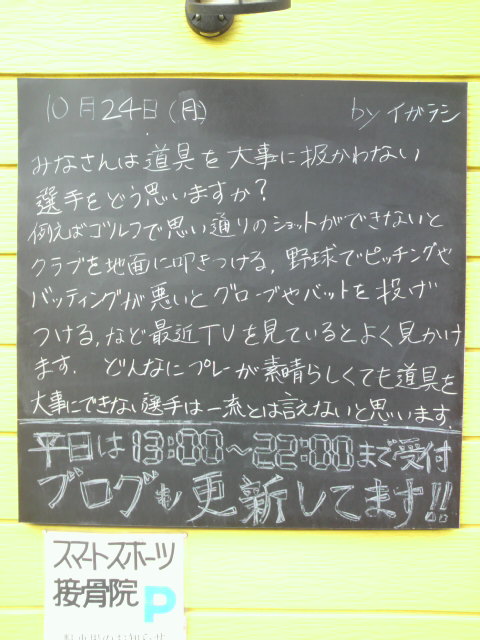 10月24日(月) by イガラシ
みなさんは道具を大事に扱かわない
選手をどう思いますか?
例えばゴルフで思い通りのショットができないと
クラブを地面に叩きつける。野球でピッチングや
バッティングが悪いとグローブやバットを投げ
つける。など最近TVを見ているとよく見かけ
ます。どんなにプレーが素晴らしくても道具を
大事にできない選手は一流とは言えないと思います。
平日は13:00~22:00まで受付
ブログも更新してます!!
スマートスポーツ
接骨院 P
駐車場のお知らせ